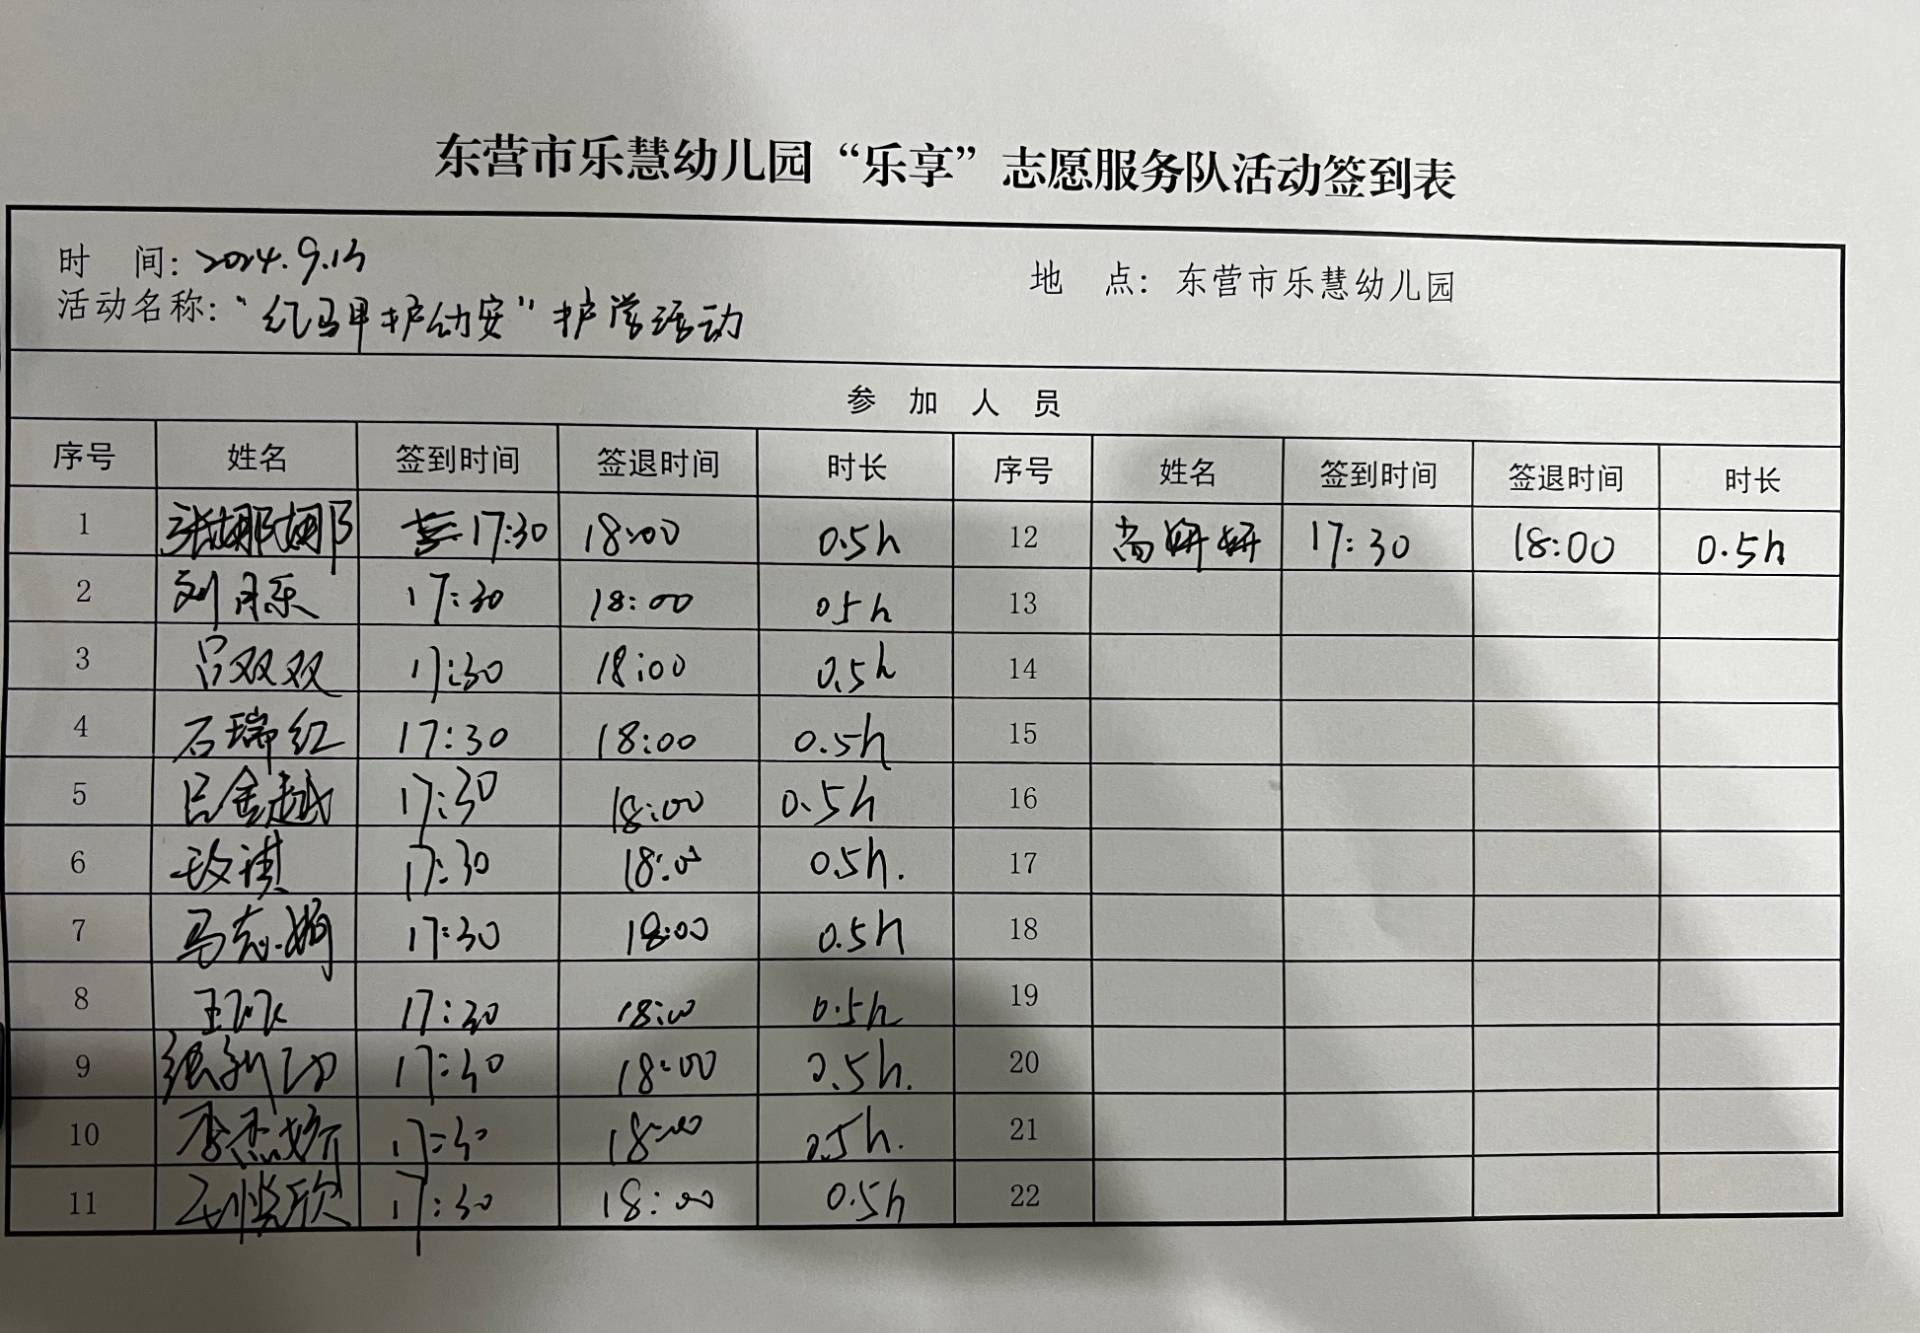 东营市乐慧幼儿园“乐享”志愿服务队活动签到表
时 间：2024.9.13
地 点：东营市乐慧幼儿园
活动名称：“红马甲护幼安”护学活动
参 加 人 员
序号 姓名 签到时间 签退时间 时长 序号 姓名 签到时间 签退时间 时长
1 张娜娜 17:30 18:00 0.5h 12 尚妍妍 17:30 18:00 0.5h
2 刘月乐 17:30 18:00 0.5h 13
3 吕双双 17:30 18:00 0.5h 14
4 石瑞红 17:30 18:00 0.5h 15
5 吕金越 17:30 18:00 0.5h 16
6 17:30 18:00 0.5h. 17
7 马志娟 17:30 18:00 0.5h 18
8 17:30 18:00 0.5h 19
9 17:30 18:00 0.5h. 20
10 李杰娇 17:30 18:00 0.5h. 21
11 17:30 18:00 0.5h 22